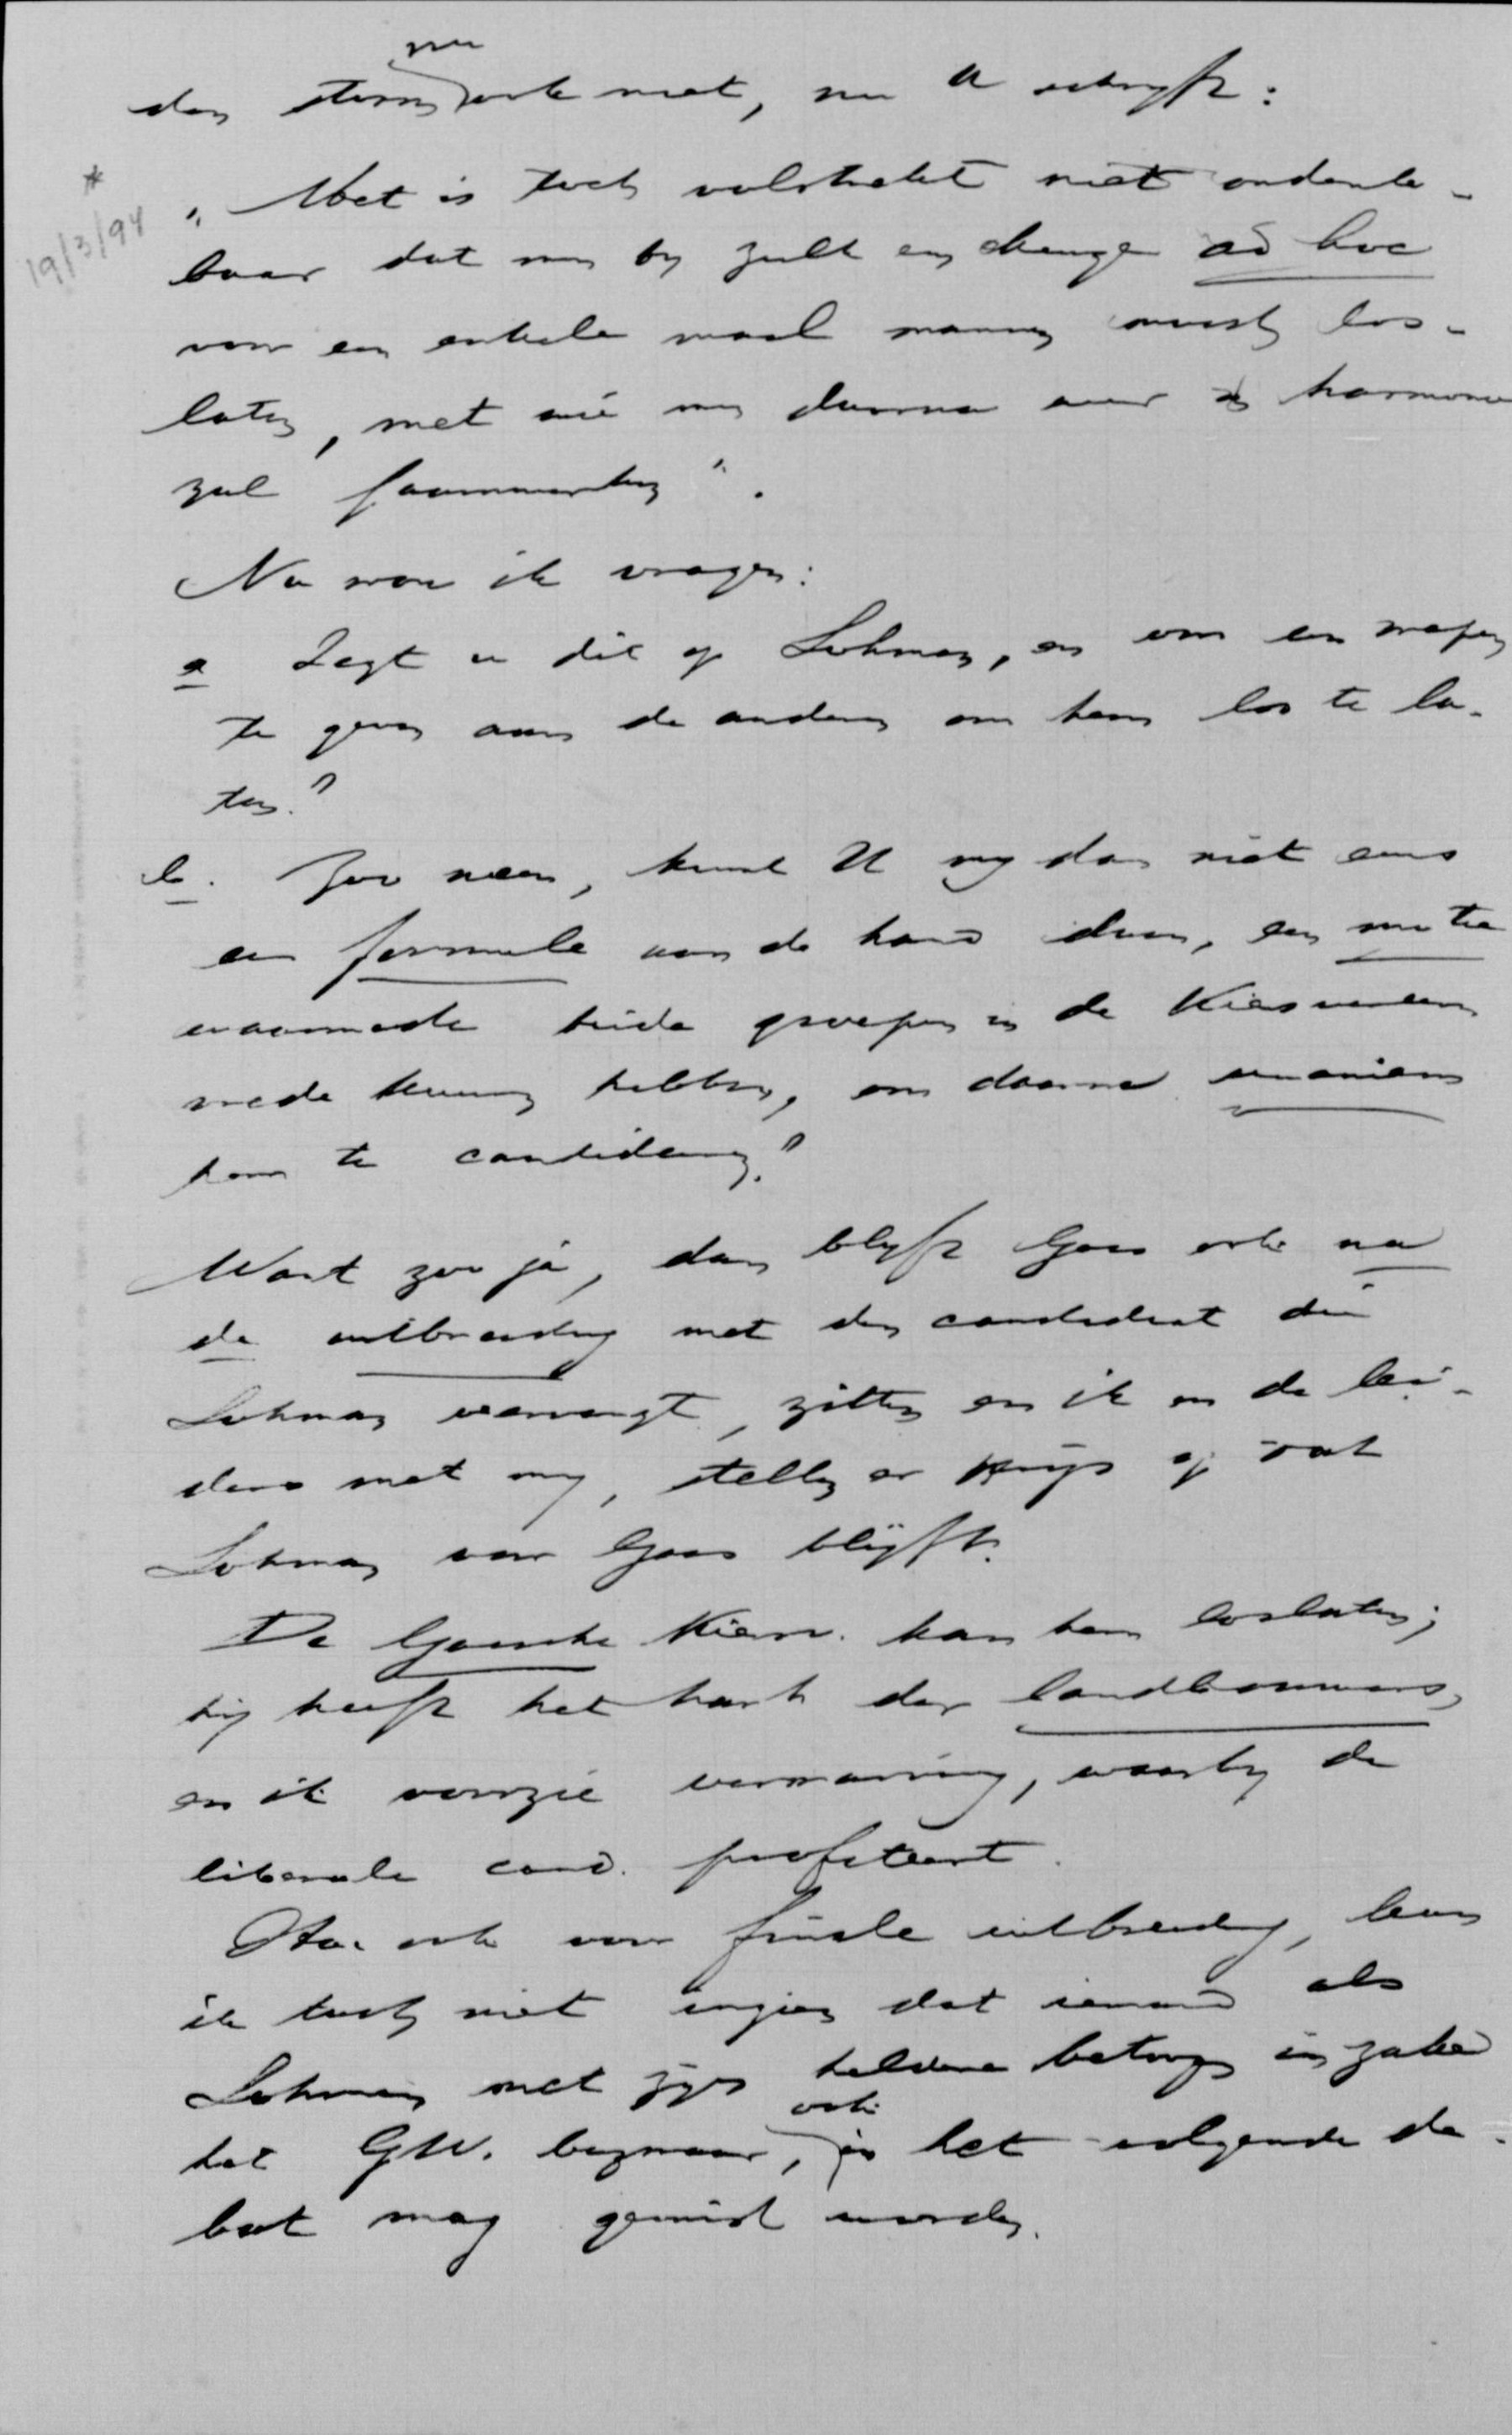 nu
dan stem ook niet, nu U schryft:
* 19/3/94
"Het is toch volstrekt niet ondenk-
baar dat men by zulk een change ad hoc
voor een enkele maal mannen moest los-
laten, met wie men daarna weer in harmonie
zal saamwerken".
Nu wou ik vragen:
a Zegt u dit op Lohman, en om een wapen
te geven aan de anderen om hem los te la-
ten?
b. Zoo neen, kunt U my dan niet eens
een formule aan de hand doen, een motie
waarmede beide groepen in de Kiesvereen
vrede kunnen hebben, om daarna unaniem
hem te candideeren?
Want zoo ja, dan blyft Goes ook na
de uitbreiding met den candidaat die
Lohman vervangt, zitten en ik en de lei-
ders met my, stellen er prijs op dat
Lohman voor Goes blijft.
De Goesche Kiesv. kan hem loslaten;
hij heeft het hart der landbouwers,
en ik voorzie verwarring, waarby de
liberale cand. profiteert.
Sta ik ook voor finale uitbreiding, kan
ik toch niet inzien dat iemand als
Lohman met zyn heldere betoog inzake
ook
het GW. bezwaar, in het volgende de-
bat mag gemist worden.